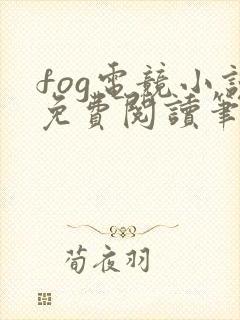 fog電競小說
免費閱讀筆
荀夜羽